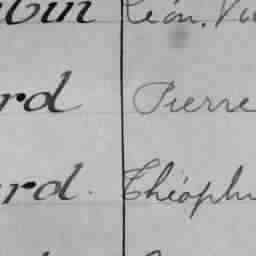 bin Léon. Vi
rd Pierre
rd. Théoph